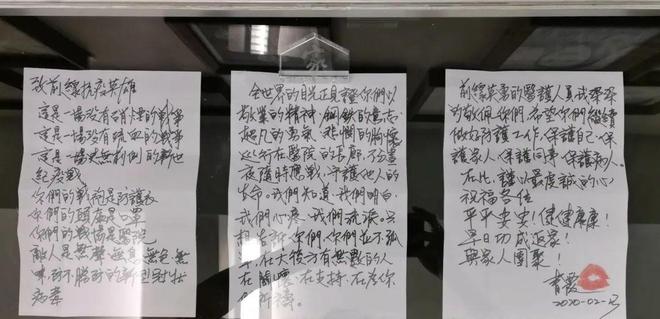 致前線抗疫英雄
這是一場沒有硝煙的戰爭
這是一場沒有流血的戰爭
這是一場史無前例的新世
紀疫戰
你們的戰袍是防護衣
你們的頭盔是口罩
你們的戰場是醫院
敵人是無聲無息無色無
味防不勝防的新型冠狀
病毒
家
全世界的目光正見證你們以
敬業的精神，鋼鐵的意志，
超凡的勇氣，悲憫的胸懷
逆行在醫院的長廊，不分晝
夜隨時應戰，守護他人的
生命。我們知道，我們明白，
我們心疼，我們流淚。只
想告訴你們，你們並不孤
單，在大後方有無數的人
在關懷，在支持，在為你
們祈禱。
前線作事的醫護人員我深深
的敬佩你們，希望你們繼續
做好防護工作，保護自己，保
護家人，保護同事，保護病人。
在此，謹以最虔誠的心
祝福各位
平平安安！健健康康！
早日功成返家！
與家人團聚！
青霞
2020-02-